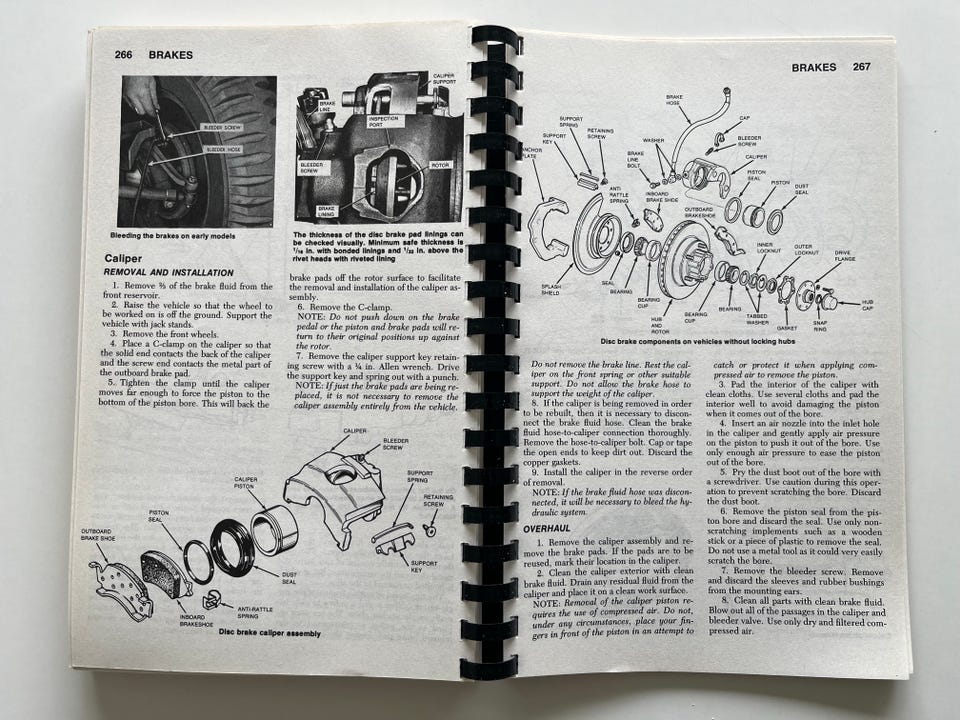 266 BRAKES
BLEEDER SCREW
BLEEDER HOSE
Bleeding the brakes on early models
CALIPER
SUPPORT
BRAKE
LINE
INSPECTION
PORT
BLEEDER
SCREW
ROTOR
BRAKE
LINING
The thickness of the disc brake pad linings can
be checked visually. Minimum safe thickness is
1/16 in. with bonded linings and 1/32 in. above the
rivet heads with riveted lining
Caliper
REMOVAL AND INSTALLATION
1. Remove ⅔ of the brake fluid from the
front reservoir.
2. Raise the vehicle so that the wheel to
be worked on is off the ground. Support the
vehicle with jack stands.
3. Remove the front wheels.
4. Place a C-clamp on the caliper so that
the solid end contacts the back of the caliper
and the screw end contacts the metal part of
the outboard brake pad.
5. Tighten the clamp until the caliper
moves far enough to force the piston to the
bottom of the piston bore. This will back the
brake pads off the rotor surface to facilitate
the removal and installation of the caliper as-
sembly.
6. Remove the C-clamp.
NOTE: Do not push down on the brake
pedal or the piston and brake pads will re-
turn to their original positions up against
the rotor.
7. Remove the caliper support key retain-
ing screw with a ¼ in. Allen wrench. Drive
the support key and spring out with a punch.
NOTE: If just the brake pads are being re-
placed, it is not necessary to remove the
caliper assembly entirely from the vehicle.
CALIPER
BLEEDER
SCREW
SUPPORT
SPRING
RETAINING
SCREW
CALIPER
PISTON
PISTON
SEAL
OUTBOARD
BRAKE SHOE
DUST
SEAL
SUPPORT
KEY
ANTI-RATTLE
SPRING
INBOARD
BRAKESHOE
Disc brake caliper assembly
BRAKES 267
BRAKE
HOSE
SUPPORT
SPRING
RETAINING
SCREW
CAP
SUPPORT
KEY
WASHER
BLEEDER
SCREW
ANCHOR
PLATE
BRAKE
LINE
BOLT
CALIPER
PISTON
SEAL
PISTON
DUST
SEAL
ANTI
RATTLE
SPRING
INBOARD
BRAKE SHOE
OUTBOARD
BRAKESHOE
INNER
LOCKNUT
OUTER
LOCKNUT
DRIVE
FLANGE
SPLASH
SHIELD
SEAL
BEARING
BEARING
CUP
HUB
AND
ROTOR
BEARING
CUP
BEARING
TABBED
WASHER
GASKET
SNAP
RING
HUB
CAP
Disc brake components on vehicles without locking hubs
Do not remove the brake line. Rest the cal-
iper on the front spring or other suitable
support. Do not allow the brake hose to
support the weight of the caliper.
8. If the caliper is being removed in order
to be rebuilt, then it is necessary to discon-
nect the brake fluid hose. Clean the brake
fluid hose-to-caliper connection thoroughly.
Remove the hose-to-caliper bolt. Cap or tape
the open ends to keep dirt out. Discard the
copper gaskets.
9. Install the caliper in the reverse order
of removal.
NOTE: If the brake fluid hose was discon-
nected, it will be necessary to bleed the hy-
draulic system.
OVERHAUL
1. Remove the caliper assembly and re-
move the brake pads. If the pads are to be
reused, mark their location in the caliper.
2. Clean the caliper exterior with clean
brake fluid. Drain any residual fluid from the
caliper and place it on a clean work surface.
NOTE: Removal of the caliper piston re-
quires the use of compressed air. Do not,
under any circumstances, place your fin-
gers in front of the piston in an attempt to
catch or protect it when applying com-
pressed air to remove the piston.
3. Pad the interior of the caliper with
clean cloths. Use several cloths and pad the
interior well to avoid damaging the piston
when it comes out of the bore.
4. Insert an air nozzle into the inlet hole
in the caliper and gently apply air pressure
on the piston to push it out of the bore. Use
only enough air pressure to ease the piston
out of the bore.
5. Pry the dust boot out of the bore with
a screwdriver. Use caution during this oper-
ation to prevent scratching the bore. Discard
the dust boot.
6. Remove the piston seal from the pis-
ton bore and discard the seal. Use only non-
scratching implements such as a wooden
stick or a piece of plastic to remove the seal.
Do not use a metal tool as it could very easily
scratch the bore.
7. Remove the bleeder screw. Remove
and discard the sleeves and rubber bushings
from the mounting ears.
8. Clean all parts with clean brake fluid.
Blow out all of the passages in the caliper and
bleeder valve. Use only dry and filtered com-
pressed air.